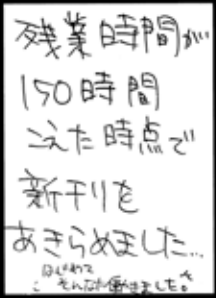 残業時間が
150時間
こえた時点で
新刊を
あきらめました…
はじめて
そんな働きました。